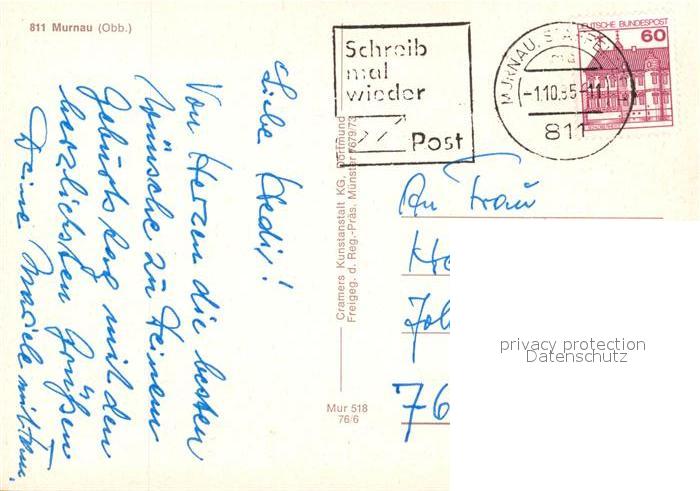 811 Murnau (Obb.)
Liebe Hedi!
Von Herzen die besten
Wünsche zu Deinem
Geburtstag mit den
herzlichsten Grüßen
Deine Mariele mit Fam.
Cramers Kunstanstalt KG, Dortmund
Freigeg. d. Reg.-Präs. Münster 7679/73
Mur 518
76/6
Schreib
mal
wieder
Post
MURNAU, STAFFE
-1.10.85-11
811
DEUTSCHE BUNDESPOST
60
An Frau
He
Joh
76
privacy protection
Datenschutz